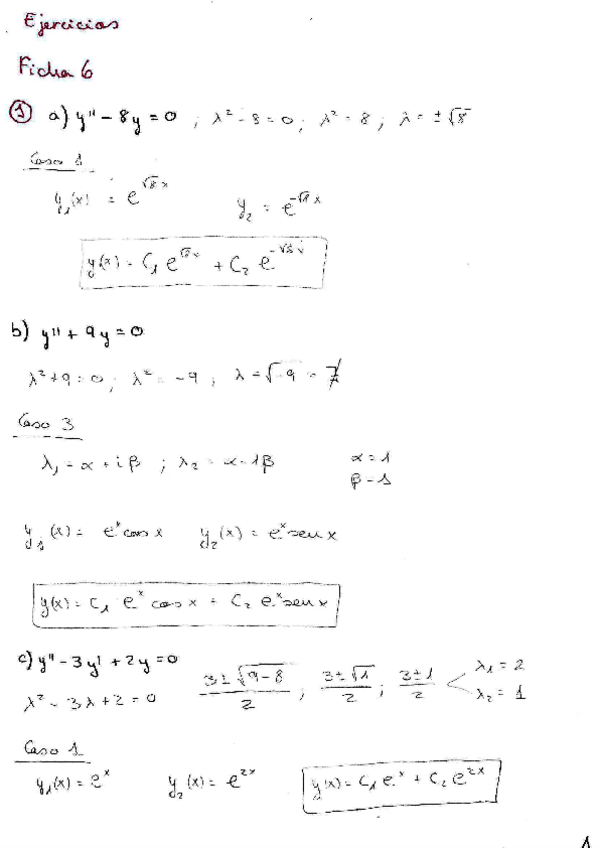 Ejercicios
Ficha 6
① a) y'' - 8y = 0 ; λ² - 8 = 0 ; λ² = 8 ; λ = ±√8
Caso 1
y₁(x) = e^(√8 x)    y₂ = e^(-√8 x)
y(x) = C₁ e^(√8 x) + C₂ e^(-√8 x)
b) y'' + 9y = 0
λ² + 9 = 0 ; λ² = -9 ; λ = √-9 = ∄
Caso 3
λ₁ = α + iβ ; λ₂ = α - iβ    α = 1
β = 1
y₁(x) = e^x cos x    y₂(x) = e^x sen x
y(x) = C₁ e^x cos x + C₂ e^x sen x
c) y'' - 3y' + 2y = 0
λ² - 3λ + 2 = 0    (3 ± √(9-8))/2 ; (3 ± √1)/2 ; (3 ± 1)/2 < λ₁ = 2
λ₂ = 1
Caso 1
y₁(x) = e^x    y₂(x) = e^(2x)    y(x) = C₁ e^x + C₂ e^(2x)
1